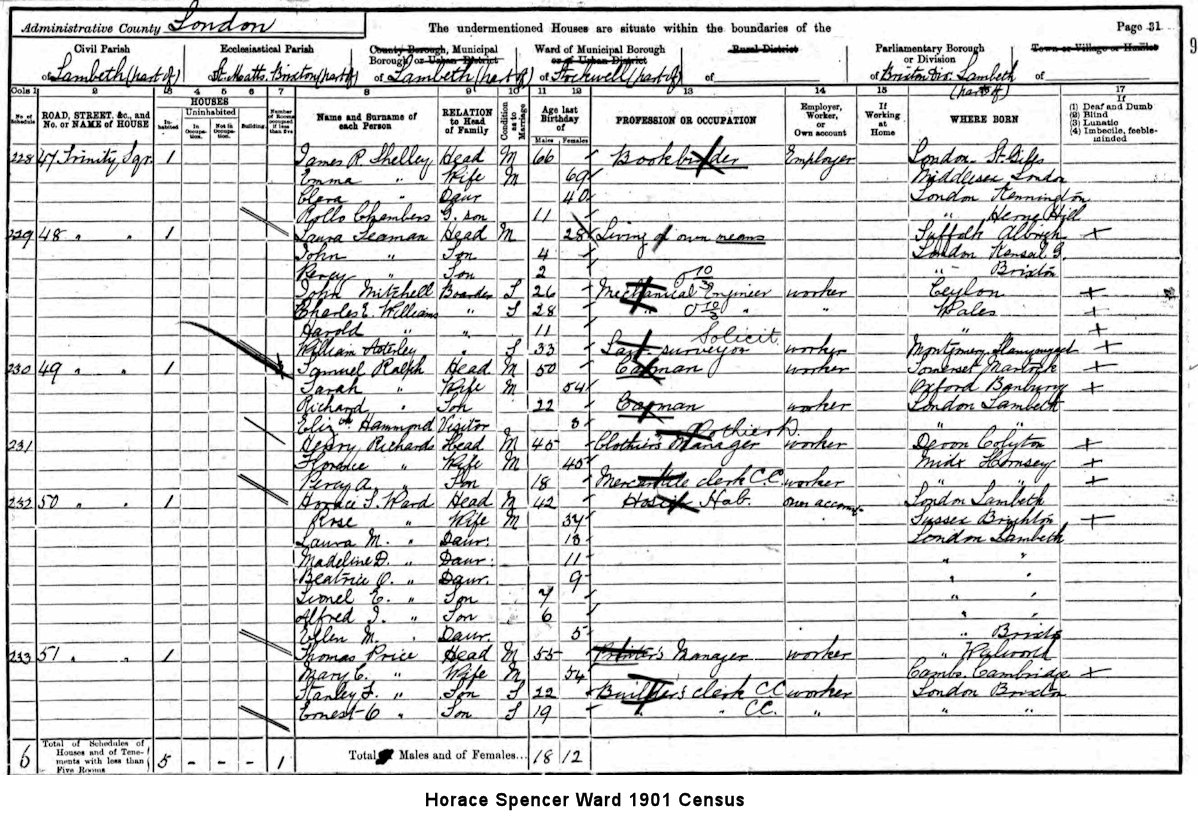 Administrative County London The undermentioned Houses are situate within the boundaries of the Page 31
9
Civil Parish Ecclesiastical Parish County Borough, Municipal Borough or Urban District Ward of Municipal Borough or of Urban District Rural District Parliamentary Borough or Division Town or Village or Hamlet
of Lambeth (part of) St. Matts. Brixton (part of) of Lambeth (part of) of Stockwell (part of) of of Brixton Div. Lambeth (part of) of
Cols 1 2 3 4 5 6 7 8 9 10 11 12 13 14 15 16 17
No. of Schedule ROAD, STREET, &c., and No. or NAME of HOUSE HOUSES Inhabited Uninhabited In Occupation. Not in Occupation. Building. Number of Rooms occupied if less than five Name and Surname of each Person RELATION to Head of Family Condition as to Marriage Age last Birthday of Males Females PROFESSION OR OCCUPATION Employer, Worker, or Own account If Working at Home WHERE BORN If (1) Deaf and Dumb (2) Blind (3) Lunatic (4) Imbecile, feeble-minded
228 47 Trinity Sqr. 1 James R Shelley Head M 66 Bookbinder Employer London St Giles
Emma " Wife M 69 Middlesex London
Clara " Daur 40 London Kennington
Rollo Chambers G. son 11 " Herne Hill
229 48 " " 1 Laura Seaman Head M 28 Living of own means Suffolk +
John " Son 4 London Kensal G.
Percy " Son 2 " Brixton
John Mitchell Boarder S 26 Mechanical Engineer worker Ceylon +
Charles E. Williams " S 28 " " " Wales +
Harold " " 11 " +
William " S 33 Solicit. surveyor worker Montgomery +
230 49 " " 1 Samuel Ralph Head M 50 Carman worker Somerset Martock +
Sarah " Wife M 54 Oxford Banbury +
Richard " Son 22 Carman worker London Lambeth
Elizth Hammond Visitor 8 " "
231 Henry Richards Head M 45 Clothier's Manager worker Devon Colyton +
Florence " Wife M 45 Midx Hornsey +
Percy A. " Son 18 Mercantile clerk C.C. worker " " +
232 50 " " 1 Horace S. Ward Head M 42 Hosier Hab. own account London Lambeth
Rose " Wife M 37 Sussex Brighton +
Laura M. " Daur. 13 London Lambeth
Madeline D. " Daur. 11 " "
Beatrice O. " Daur. 9 " "
Lionel E. " Son 7 " "
Alfred J. " Son 6 " "
Ellen M. " Daur. 5 " Brixton
233 51 " " 1 Thomas Price Head M 55 Printer's Manager worker " Walworth
Mary C. " Wife M 54 Cambs. Cambridge +
Stanley F. " Son S 22 Builder's clerk CC worker London Brixton
Ernest C " Son S 19 " " CC. " " "
6 Total of Schedules of Houses and of Tenements with less than Five Rooms 5 - - - 1 Total of Males and of Females... 18 12
Horace Spencer Ward 1901 Census